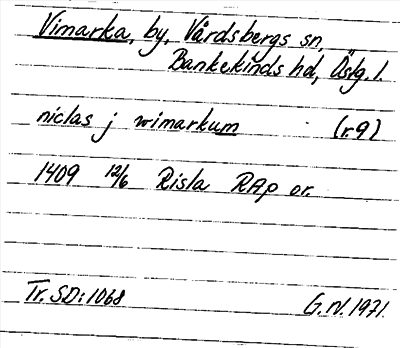 Vimarka, by, Vårdsbergs sn,
Bankekinds hd, Östg. l.
niclas j wimarkum (r.9)
1409 12/6 Risla RAp or.
Tr. SD: 1068 G.N. 1971.